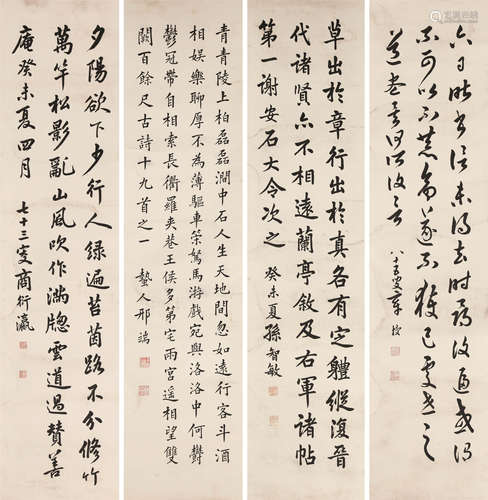 六日昨書信未得去時尋復逼或謂
不可以不恭命遂不獲已處世之
道盡矣何所復言
叟章梫
草出於章行出於真名有定軆縱復晉
代諸賢亦不相遠蘭亭敘及右軍諸帖
第一謝安石大令次之
癸未夏孫智敏
青青陵上柏磊磊澗中石人生天地間忽如遠行客斗酒
相娛樂聊厚不為薄驅車策駑馬游戲宛與洛洛中何鬱
鬱冠帶自相索長衢羅夾巷王侯多第宅兩宮遙相望雙
闕百餘尺古詩十九首之一 蟄人邢端
夕陽欲下少行人綠遍苔茵路不分修竹
萬竿松影亂山風吹作滿牕雲道過贊善
庵癸未夏四月
七十三叟商衍瀛